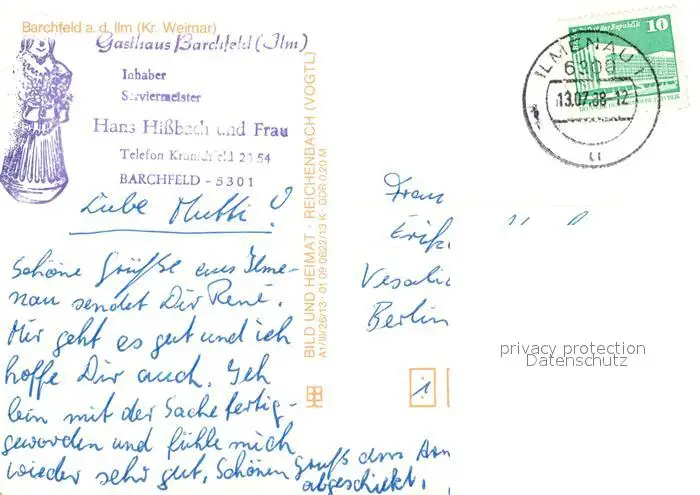 Barchfeld a. d. Ilm (Kr. Weimar)
Gasthaus Barchfeld (Ilm)
Inhaber
Serviermeister
Hans Hißbach und Frau
Telefon Kranichfeld 2054
BARCHFELD - 5301
Liebe Mutti!
Schöne Grüße aus Ilme-
nau sendet Dir René.
Mir geht es gut und ich
hoffe Dir auch. Ich
bin mit der Sache fertig-
geworden und fühle mich
wieder sehr gut. Schönen Gruß
abgeschickt.
BILD UND HEIMAT · REICHENBACH (VOGTL)
A1/III/26/13 · 01 09 0622/13 K · DDR 0,20 M
10
ILMENAU 1
6300
13.07.88-12
Frau
Erik
Vesali
Berlin
1
privacy protection
Datenschutz